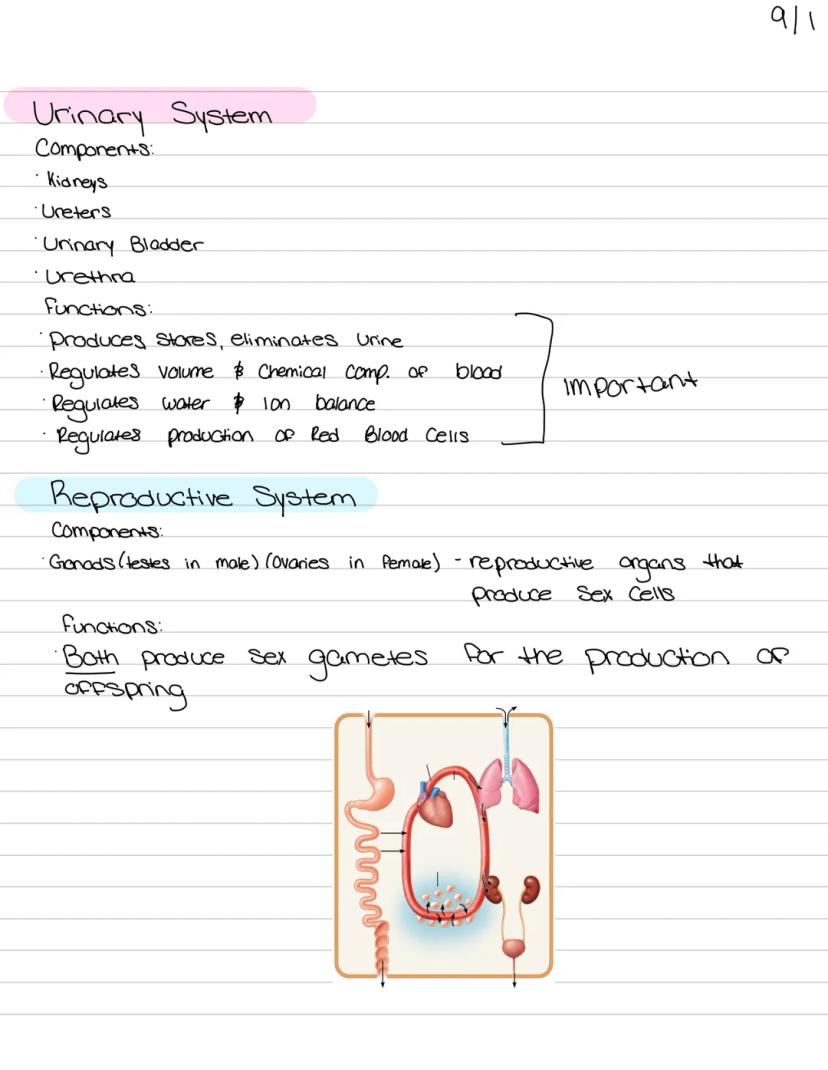 9/1
Urinary System
Components:
· Kidneys
· Ureters
· Urinary Bladder
· Urethra
Functions:
· Produces, Stores, eliminates Urine
· Regulates volume & Chemical Comp. of blood
· Regulates water & Ion balance
· Regulates production of Red Blood Cells
Important
Reproductive System
Components:
· Gonads (testes in male) (Ovaries in Female) - reproductive organs that
produce Sex Cells
Functions:
· Both produce sex gametes for the production of
offspring